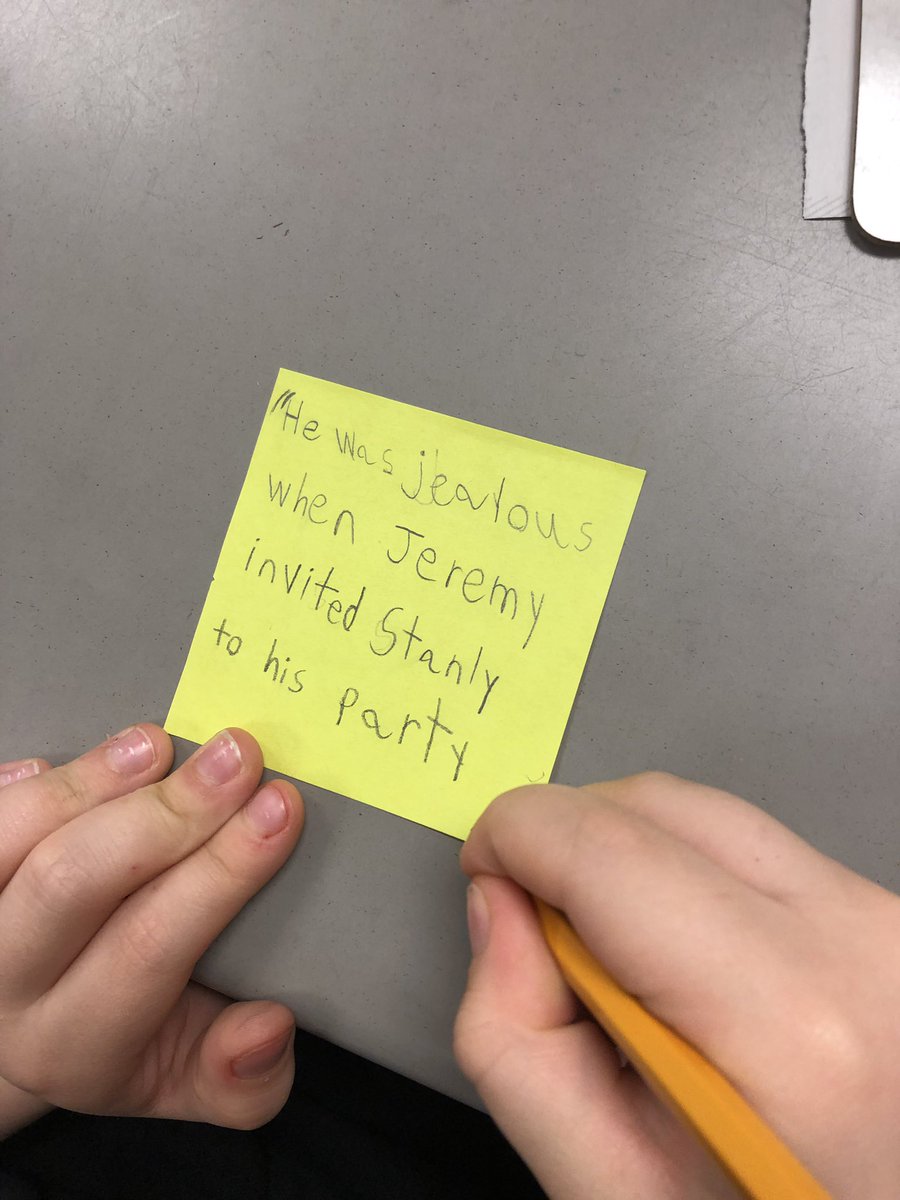 "He was jealous
when Jeremy
invited Stanly
to his party